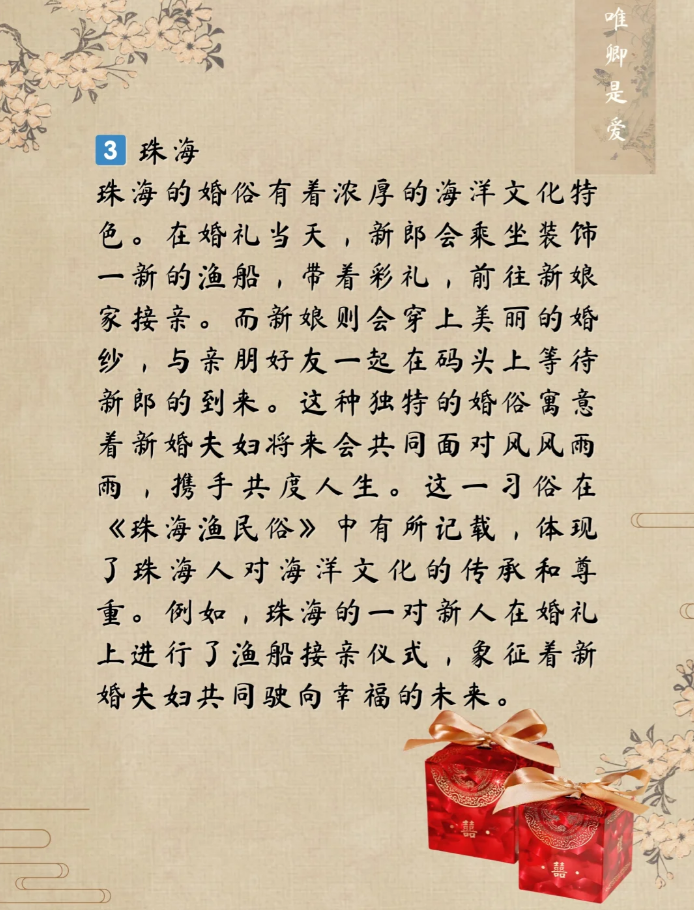 唯卿是爱
3 珠海
珠海的婚俗有着浓厚的海洋文化特
色。在婚礼当天，新郎会乘坐装饰
一新的渔船，带着彩礼，前往新娘
家接亲。而新娘则会穿上美丽的婚
纱，与亲朋好友一起在码头上等待
新郎的到来。这种独特的婚俗寓意
着新婚夫妇将来会共同面对风风雨
雨，携手共度人生。这一习俗在
《珠海渔民俗》中有所记载，体现
了珠海人对海洋文化的传承和尊
重。例如，珠海的一对新人在婚礼
上进行了渔船接亲仪式，象征着新
婚夫妇共同驶向幸福的未来。
囍
囍